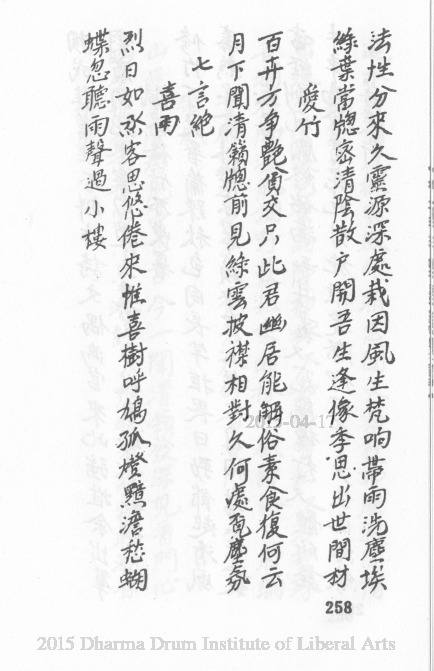 法性分來久靈源深處栽因風生梵响帶雨洗塵埃
綠葉當窓密清陰散户開吾生逢像季思出世間材
愛竹
百卉方争艷貧交只此君幽居能解俗素食復何云
月下聞清籟窓前見綠雲披襟相對久何處覓塵氛
七言絶
喜雨
烈日如烝客思悠倦來惟喜樹呼鳩孤燈黯澹愁蝴
蝶忽聽雨聲過小樓
258
2015-04-17
2015 Dharma Drum Institute of Liberal Arts